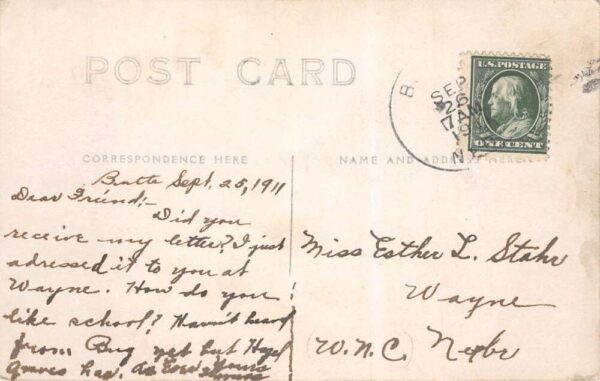 POST CARD
B
SEP
26
7 AM
19
N
U.S. POSTAGE
ONE CENT
CORRESPONDENCE HERE
NAME AND ADDRESS HERE
Butte Sept. 25, 1911
Dear Friend:-
Did you
receive my letter? I just
adressed it to you at
Wayne. How do you
like school? Havn't heard
from Bug yet but Hazel
Graves has. As Ever Yours
Miss Esther L. Stahr
Wayne
W.N.C. Nebr